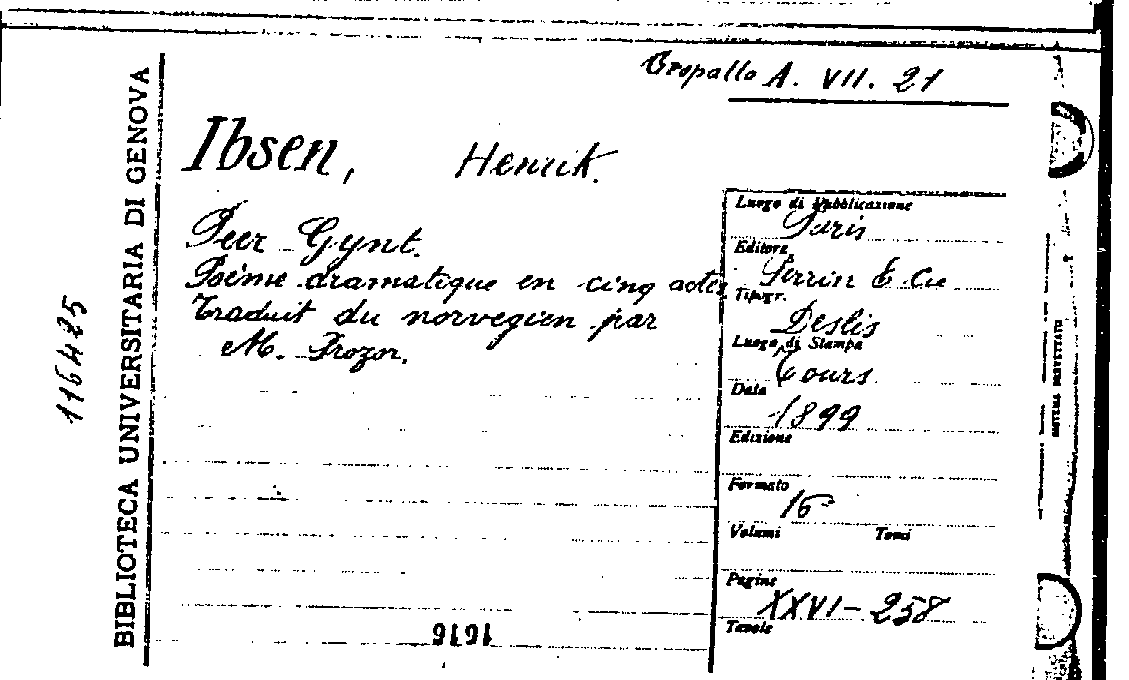 Gropallo A. VII. 21
Ibsen, Henrik.
Peer Gynt.
Poème dramatique en cinq actes
Traduit du norvegien par
M. Prozor.
Luogo di Pubblicazione
Paris
Editore
Perrin & Cie
Tipogr.
Deslis
Luogo di Stampa
Tours
Data
1899
Edizione
Formato
16°
Volumi Tomi
Pagine
XXVI-258
Tavole
1616
BIBLIOTECA UNIVERSITARIA DI GENOVA
116425
SISTEMA BREVETTATO